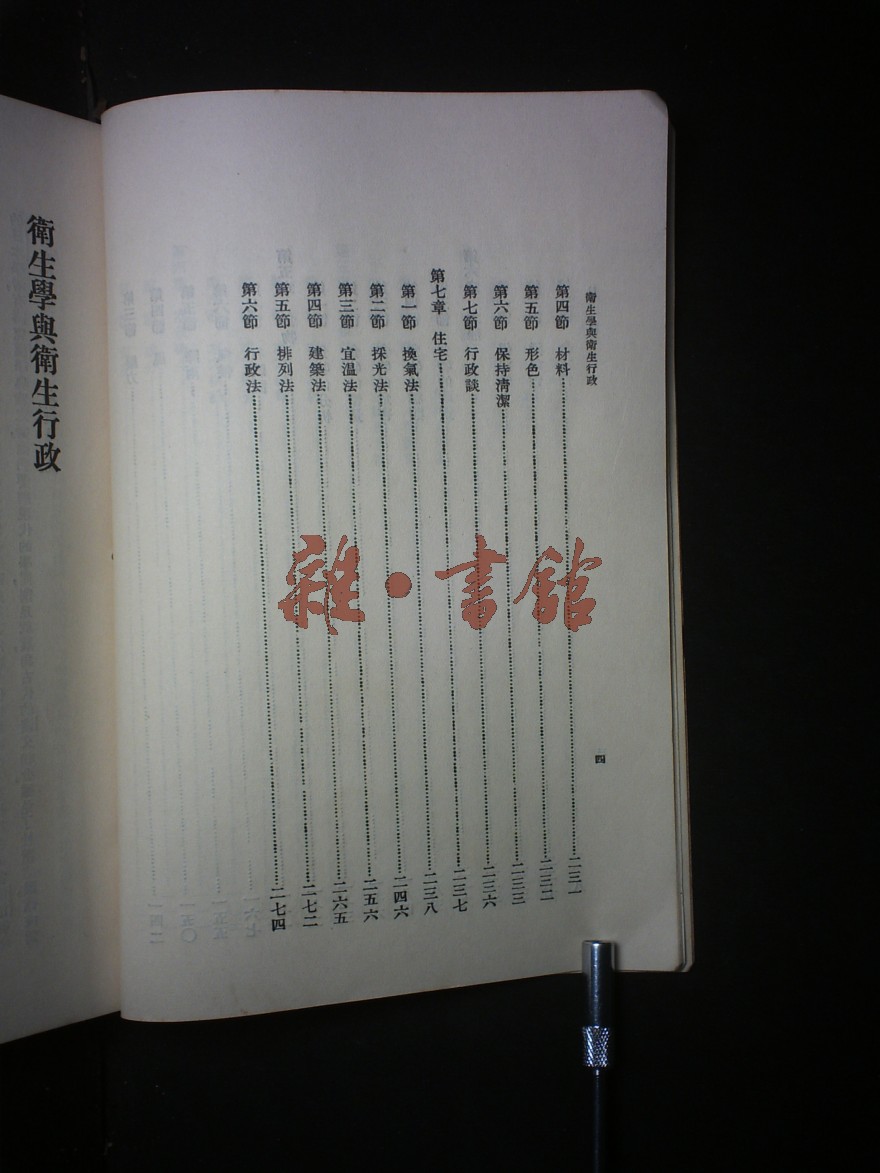 衛生學與衛生行政
四
第四節 材料……二三一
第五節 形色……二三二
第六節 保持清潔……二三三
第七節 行政談……二三六
第七章 住宅……二三七
第一節 換氣法……二三八
第二節 採光法……二四六
第三節 宜溫法……二五六
第四節 建築法……二六五
第五節 排列法……二七二
第六節 行政法……二七四
衛生學與衛生行政
雜·書館